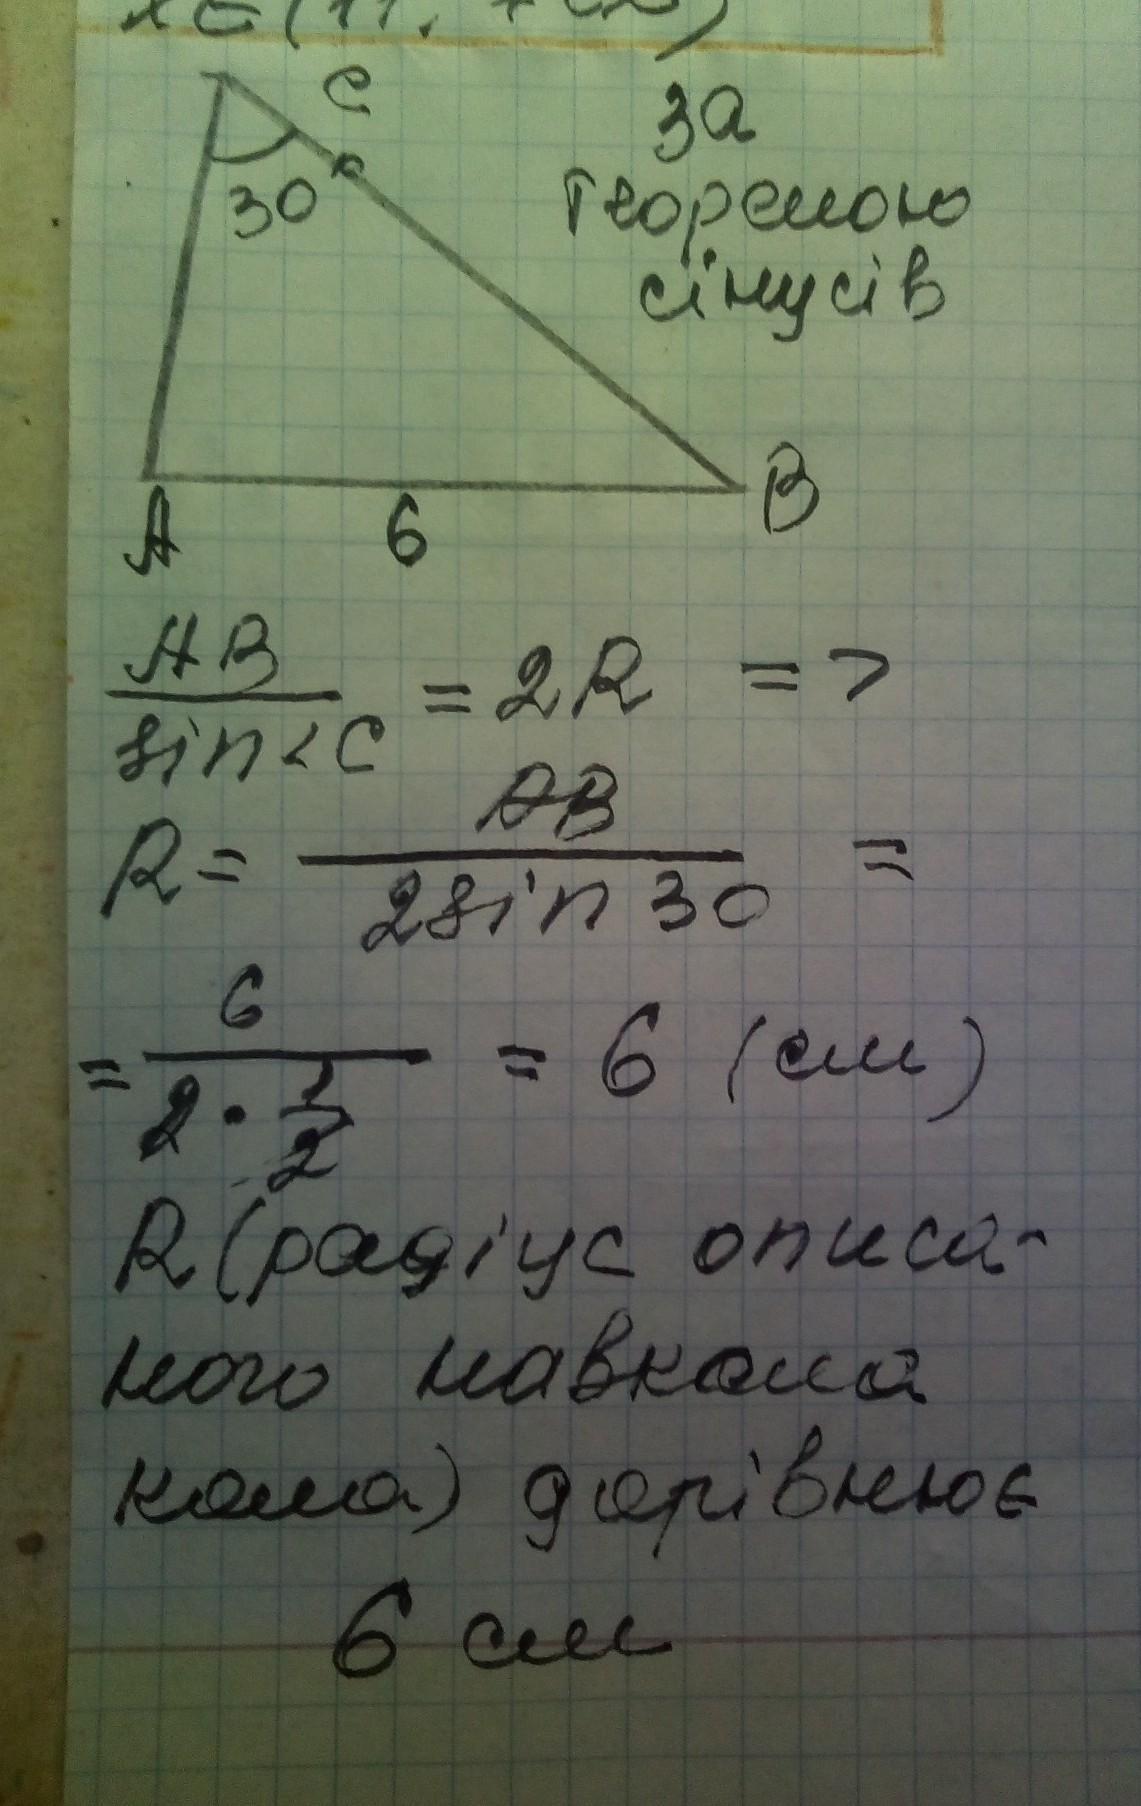 C
30
За
теоремою
сінусів
A
6
B
AB / sin<C = 2R =>
R = AB / 2sin 30 =
= 6 / 2 · 1/2 = 6 (см)
R (радіус описа-
ного навкола
кола) дорівнює
6 см